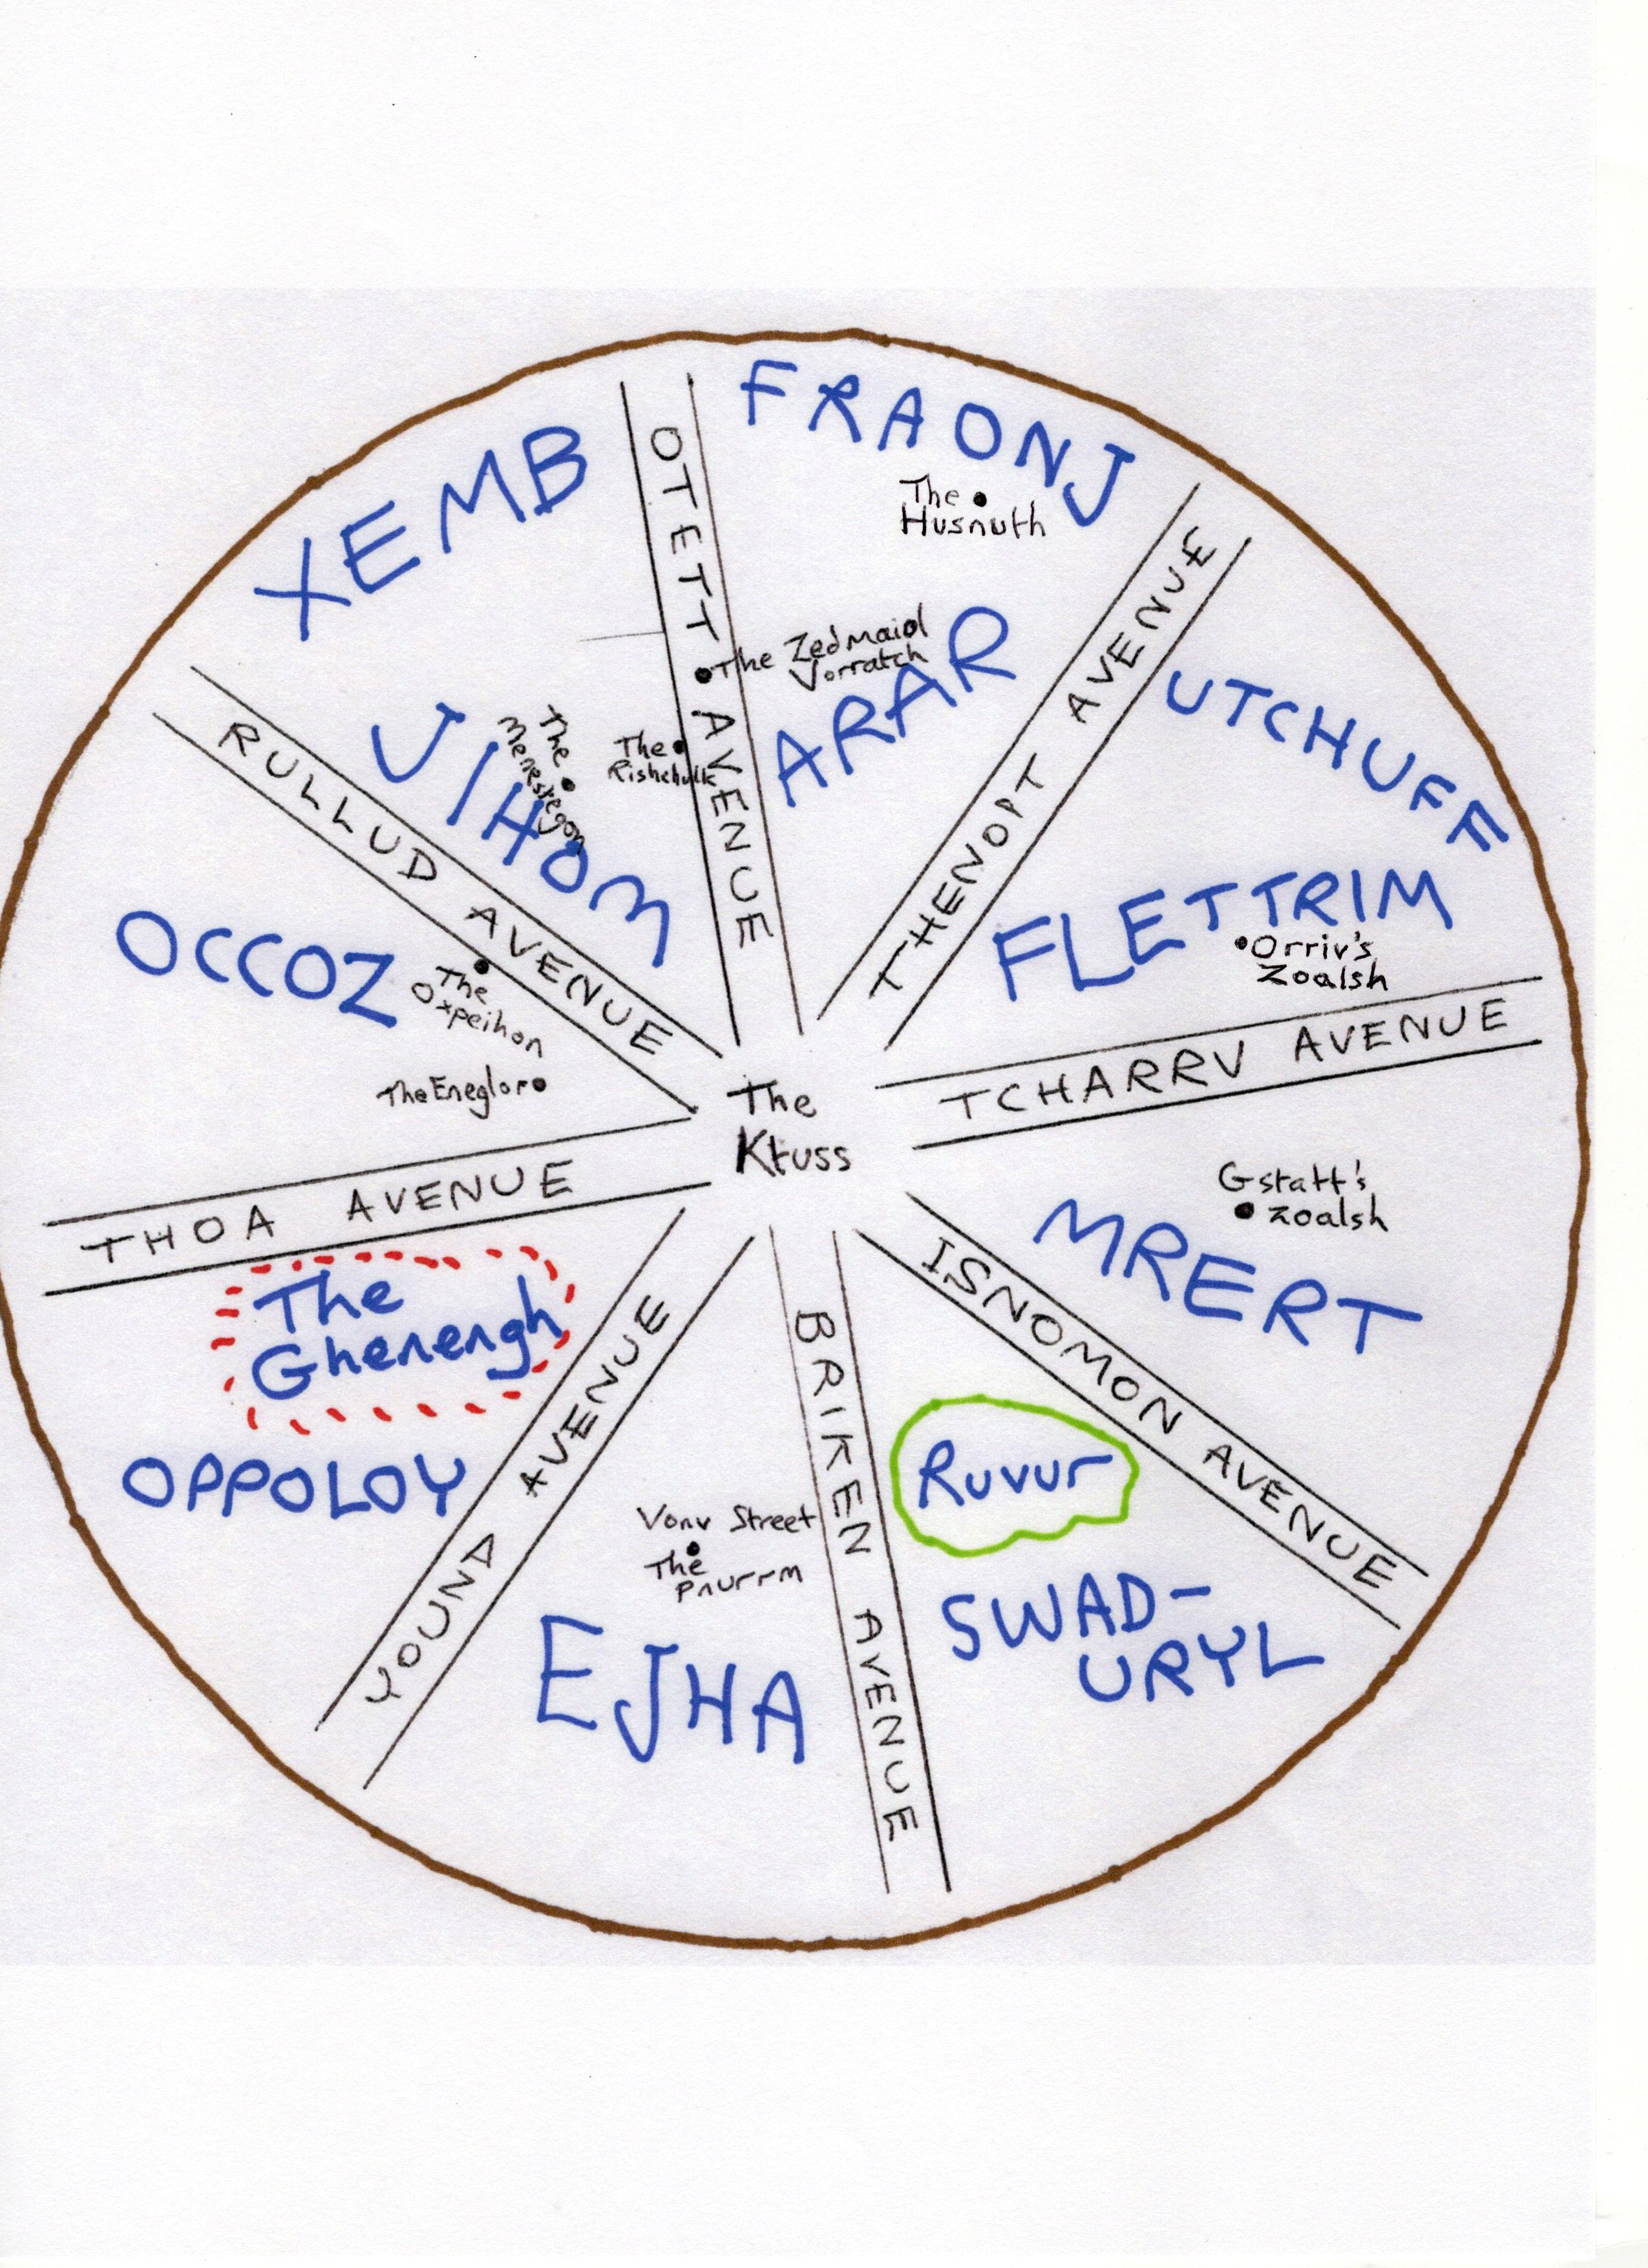 FRAONJ
XEMB
OTETT AVENUE
The
Husnuth
THENOPT AVENUE
The Zedmaid
Jorratch
ARAR
UTCHUFF
RULLUD AVENUE
JIHOM
The
The
Rishchulk
FLETTRIM
Orriv's
Zoalsh
OCCOZ
The
Oxpeihon
The Eneglor
TCHARRV AVENUE
The
Ktuss
THOA AVENUE
Gstatt's
Zoalsh
MRERT
ISNOMON AVENUE
The
Ghenengh
OPPOLOY
YOUND AVENUE
BRIKEN AVENUE
Ruvur
Vonv Street
The
Pnurrm
EJHA
SWAD-
URYL